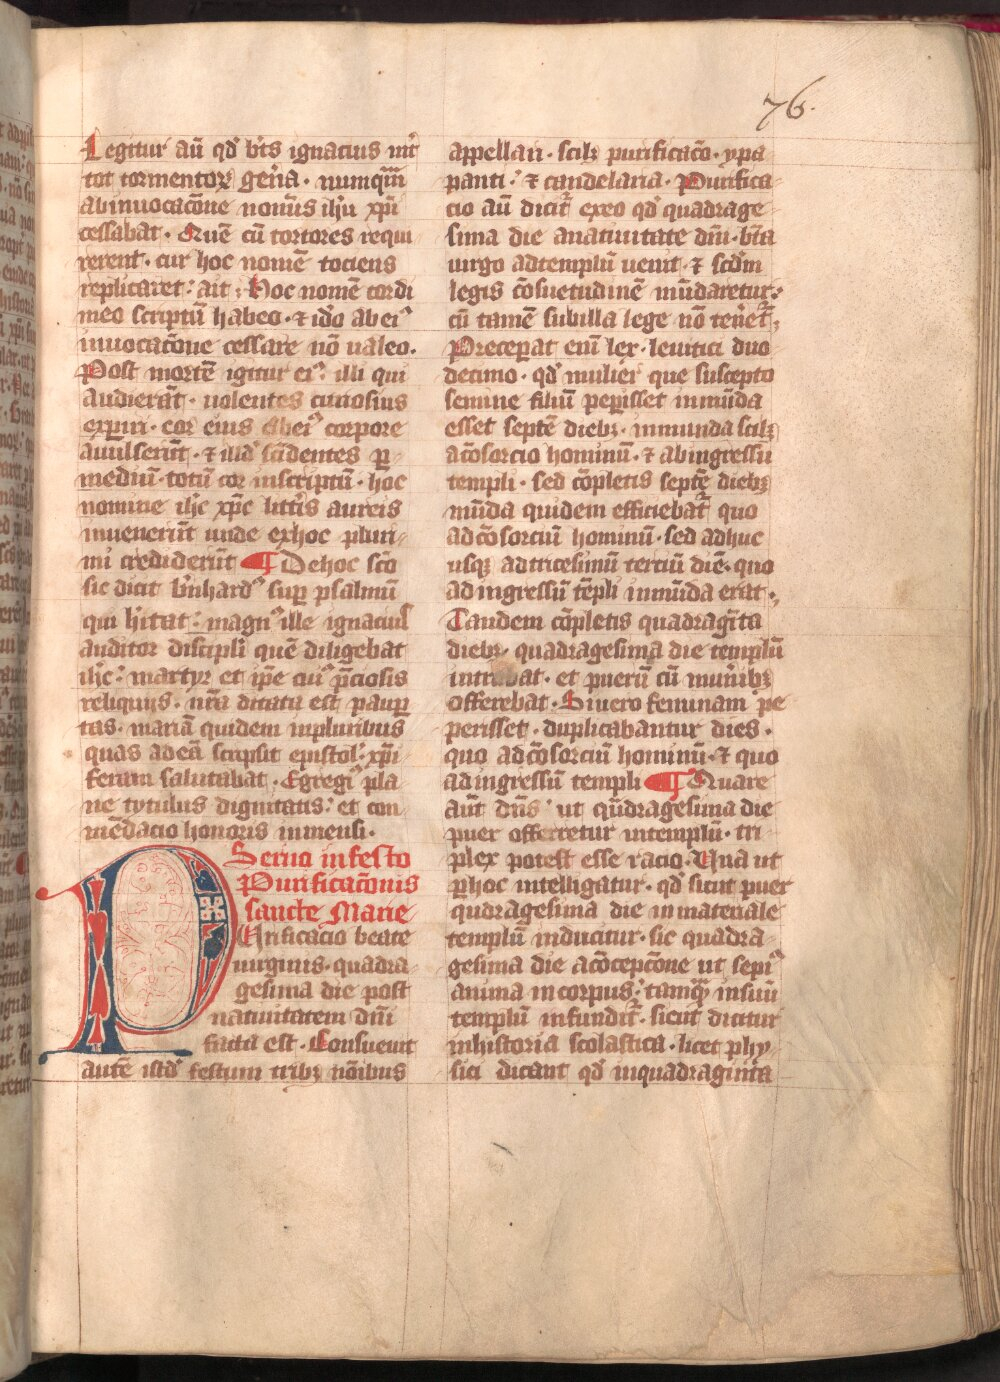 76.
Legitur aū qd̓ bt̄s ignacius int̓
tot tormentoꝝ gen̄a · numqͣm̄
abinuocac̄one nomīs ih̓u xp̄i
cessabat · Quē cū tortores requi
rerent · cur hoc nomē tociens
replicaret · ait · Hoc nomē cordi
meo scriptū habeo · ⁊ id̓o abeiꝰ
inuocac̄one cessare nō ualeo ·
Post mortē igitur eiꝰ illi qui
audierāt · uolentes curiosius
expiri · cor eius abeiꝰ corpore
auulserūt · ⁊ illd̓ scīdentes p̱
mediū · totū cor inscriptū · hoc
nomine ih̓c xp̄c litt̓is aureis
inuenerūt unde exhoc pluri
mi crediderūt ¶ Dehoc sc̄o
sic dicit b̓nhardꝰ sup̱ psalmū
qui h̓itat · magnꝰ ille ignacius
auditor discipli quē diligebat
ih̓c · martyr et ip̄e cuiꝰ p̄ciosis
reliquijs · nr̄a ditata est paup̱
tas · mariā quidem inpluribus
quas ad eā scripsit epistol̓ · xp̄i
feram salutabat · Egregiꝰ pla
ne tytulus dignitatis · et con
mēdacio honoris inmensi ·
Sermo infesto
Purificac̄onis
sancte Marie
PUrificacio beate
uirginis · quadra
gesima die post
natiuitatem dn̄i
facta est · Consueuit
autē istd̓ festum tribꝫ nōibus
appellari · scilꝫ purificac̄o · ypa
panti · ⁊ candelaria · Purifica
cio aū dicit̓ exeo qd̓ quadrage
sima die anatiuitate dn̄i · bt̄a
uirgo adtemplū uenit · ⁊ scd̓m
legis cōsuetudinē mūdaretur ·
cū tamē subilla lege nō tenet̓ ·
Preceperat eni̅ lex · leuitici duo
decimo · qd̓ mulier que suscepto
semine filiū pep̱isset inmūda
esset septē diebꝫ · inmunda scilꝫ
ac̄osorcio hominū · ⁊ abingressu
templi · sed cōpletis septē diebꝫ
mūda quidem efficiebat̓ quo
adc̄osorciū hominū · sed adhuc
usqꝫ adtricesimū terciū diē · quo
ad ingressū tēpli inmūda erat ·
Tandem cōpletis quadragīta
diebꝫ · quadragesima die templū
intrabat · et puerū cū munibꝫ
offerebat · Si uero feminam pe
perisset · duplicabantur dies ·
quo adc̄osorciū hominū · ⁊ quo
ad ingressū templi ¶ Quare
aūt dn̄s · ut qͣdragesima die
puer offerretur intemplū · tri
plex potest esse racio · Una ut
p̱hoc intelligatur · qd̓ sicut puer
qudragesima die in materiale
templū inducitur · sic quadra
gesima die ac̄ocepc̄one ut sepiꝰ
anima in corpus · tamqͣ insuū
templū infundit̓ · sicut dicitur
inhistoria scolastica · licet phy
sici dicant qd̓ inquadraginta